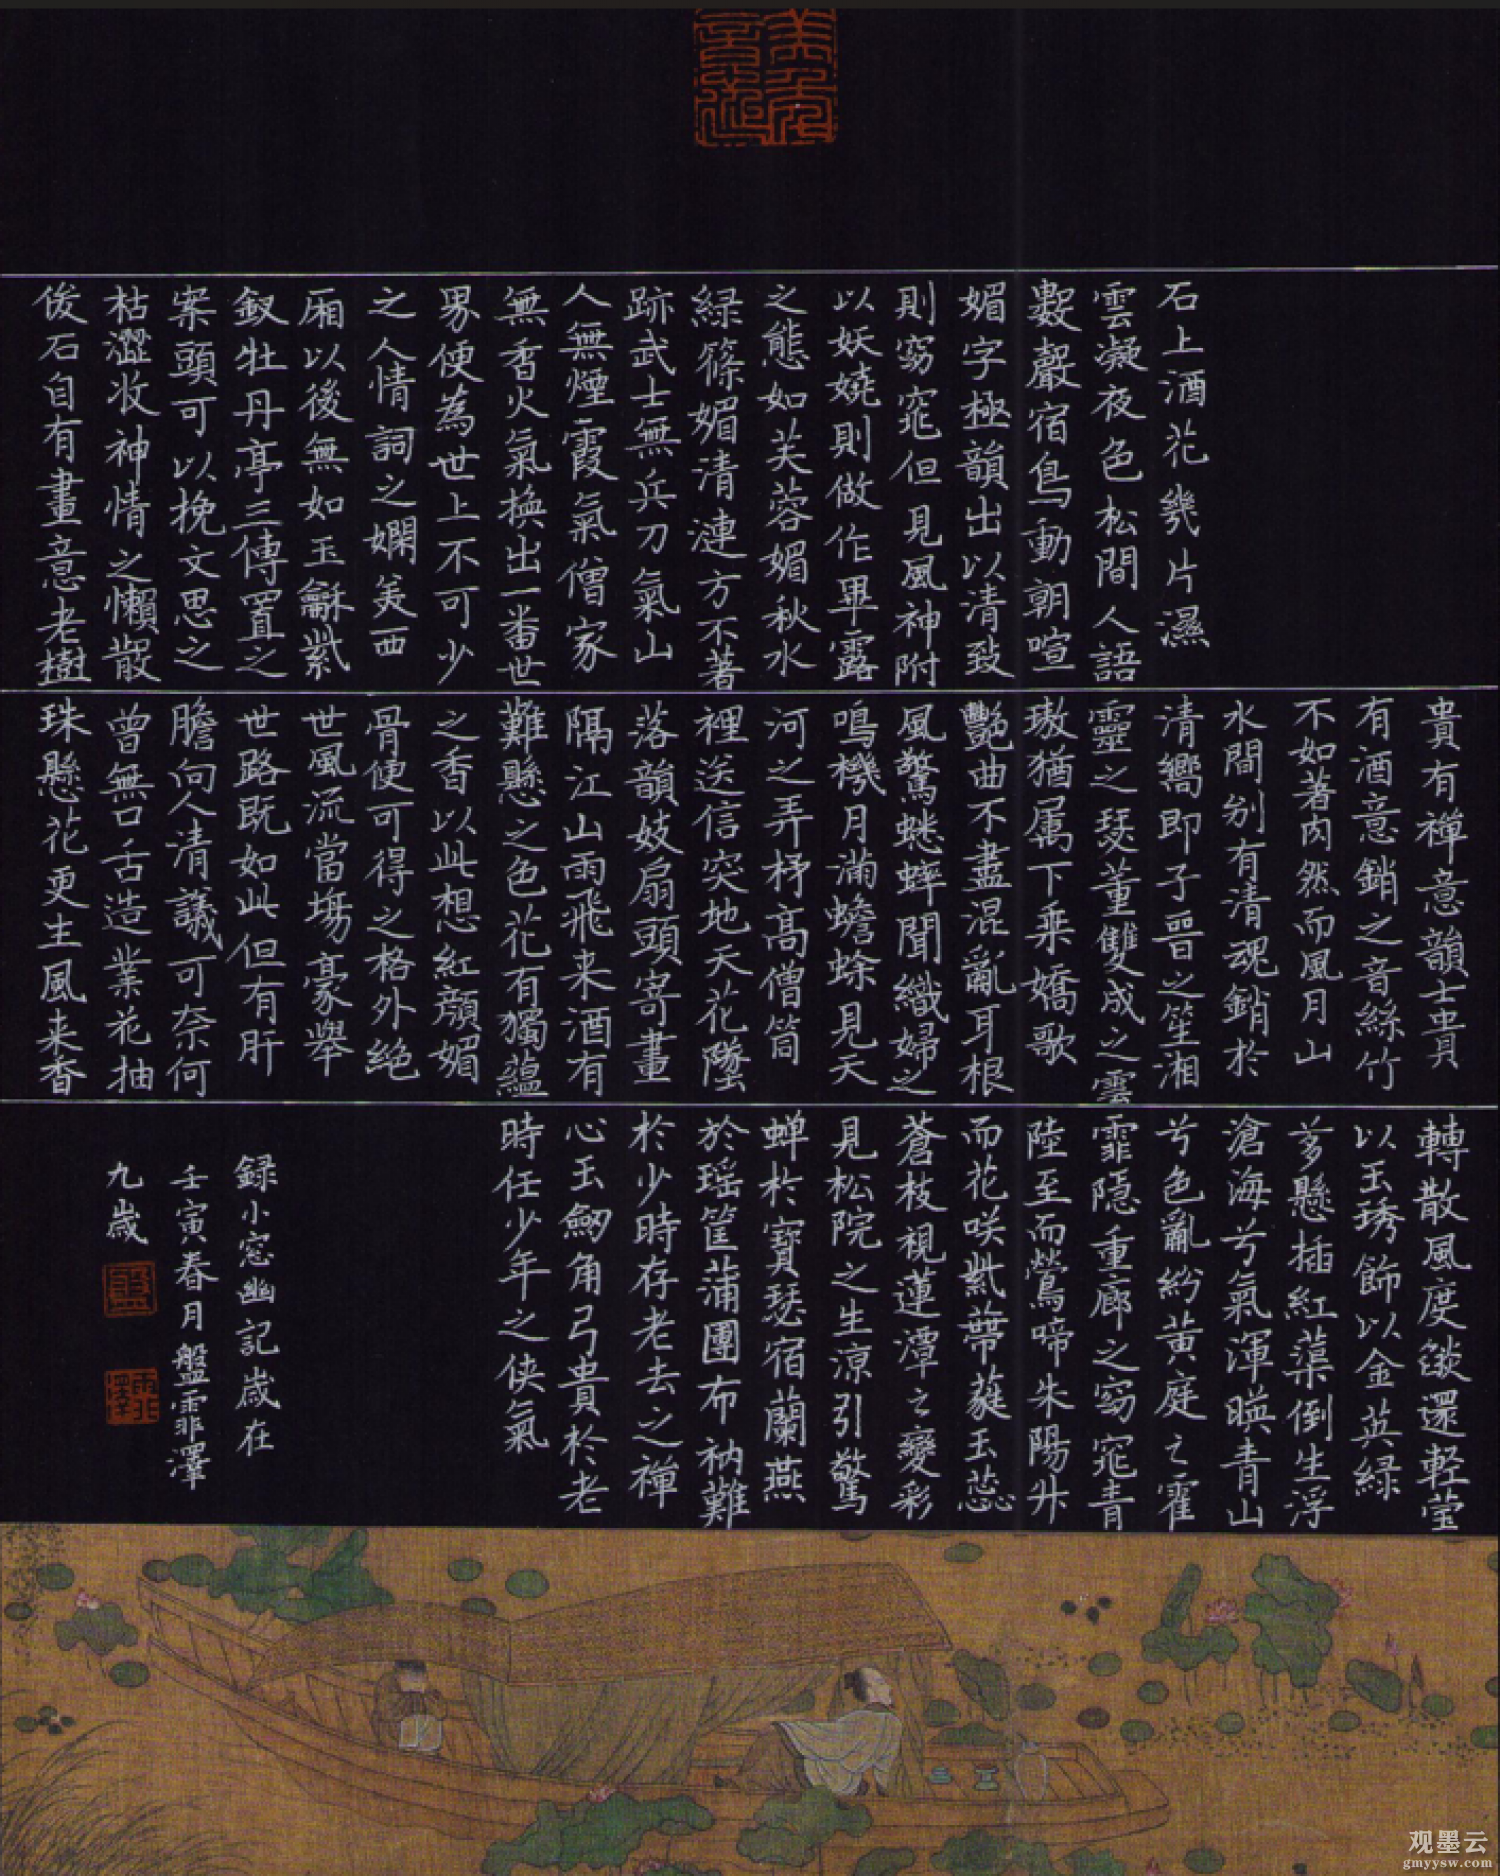 石上酒花幾片濕
雲凝夜色松間人語
數聲宿鳥動朝喧
媚字極韻出以清致
則窈窕但見風神附
以妖嬈則做作畢露
之態如芙蓉媚秋水
緑篠媚清漣方不著
跡武士無兵刀氣山
人無煙霞氣僧家
無香火氣換出一番世
界便為世上不可少
之人情詞之嫻美西
厢以後無如玉龢紫
釵牡丹亭三傳置之
案頭可以挽文思之
枯澀收神情之懶散
俊石自有畫意老樹
貴有禪意韻士貴
有酒意銷之音絲竹
不如著肉然而風月山
水間别有清魂銷於
清嚮即子晉之笙湘
靈之瑟董雙成之雲
璈猶属下乗嬌歌
艷曲不盡混亂耳根
風驚蟋蟀聞織婦之
鳴機月滿蟾蜍見天
河之弄杼高僧筒
裡送信突地天花墜
落韻妓扇頭寄畫
隔江山雨飛来酒有
難懸之色花有獨蘊
之香以此想紅顔媚
骨便可得之格外絶
世風流當塲豪舉
世路既如此但有肝
膽向人清議可奈何
曾無口舌造業花抽
珠懸花更生風来香
轉散風度燄還輕瑩
以玉琇飾以金英緑
芰懸插紅蕖倒生浮
滄海兮氣渾暎青山
兮色亂紛黄庭之霍
霏隠重廊之窈窕青
陸至而鶯啼朱陽升
而花咲紫蔕蕤玉蕊
蒼枝視蓮潭之變彩
見松院之生涼引驚
蝉於寳瑟宿蘭燕
於瑶筐蒲團布衲難
於少時存老去之禪
心玉劒角弓貴於老
時任少年之侠氣
録小窓幽記歲在
壬寅春月盤霏澤
九歲
盤
霏澤
观墨云
gmyysw.com